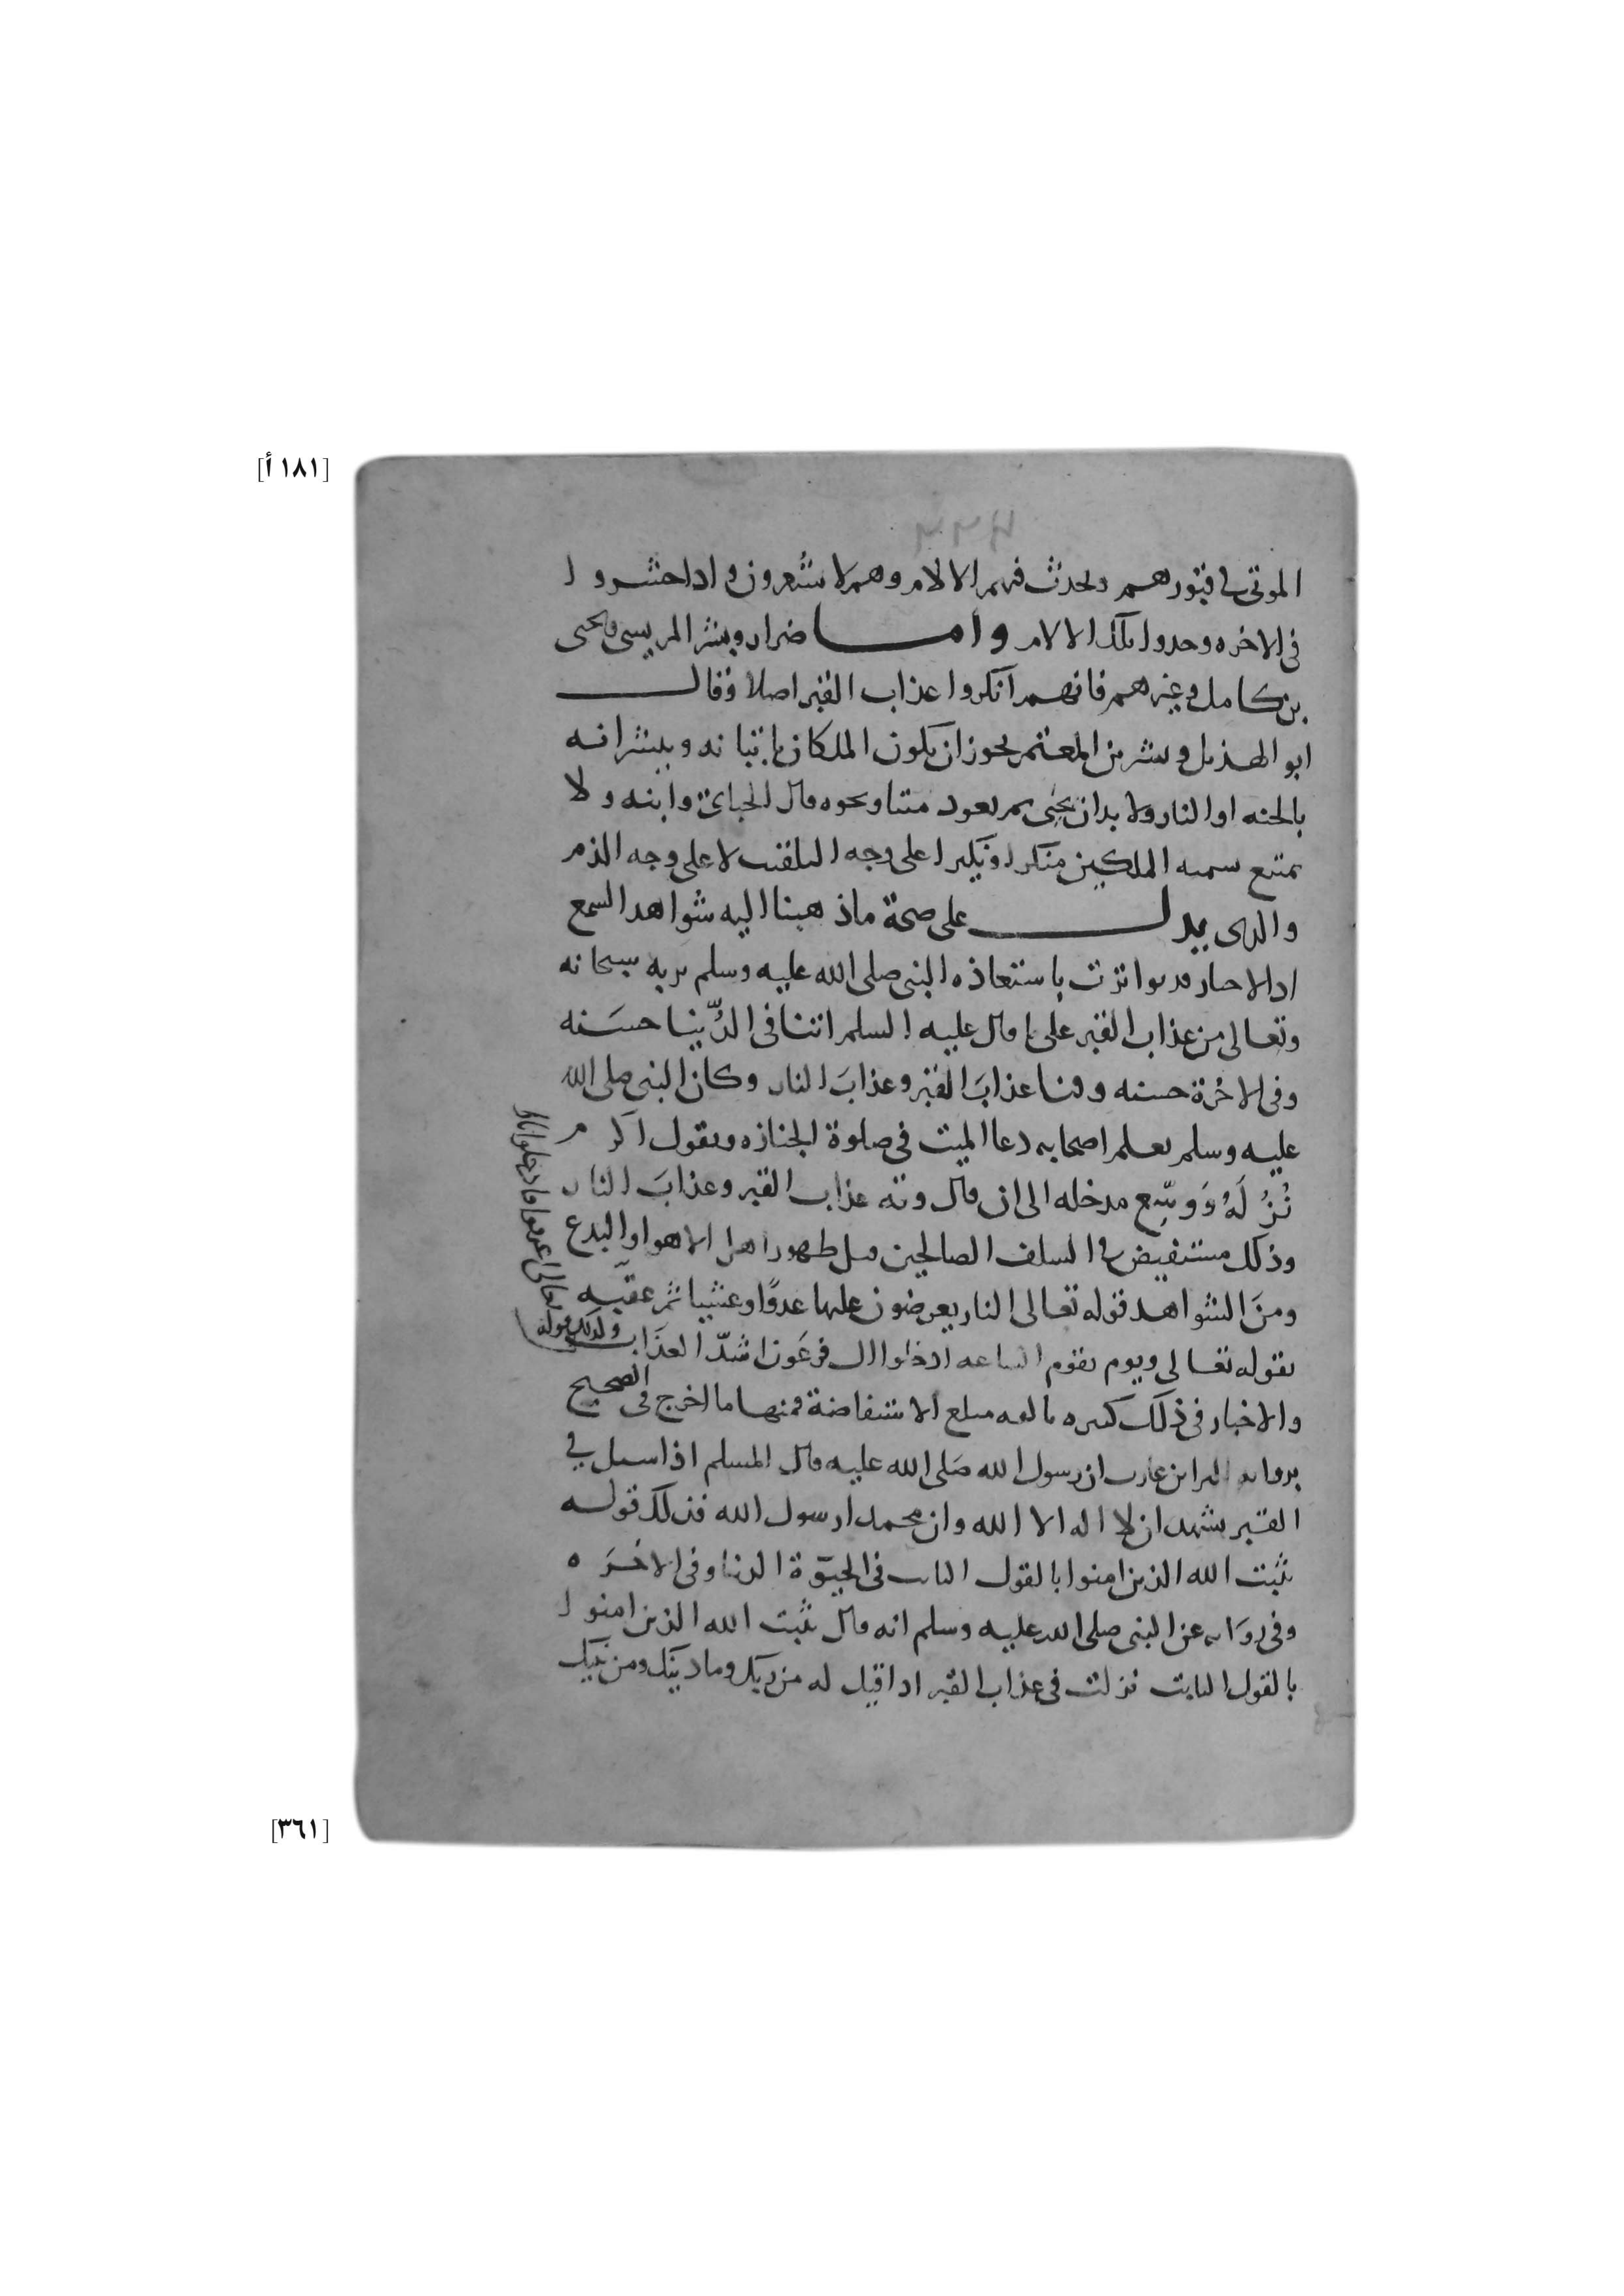 [١٨١ أ]
الموتى في قبورهم ويحدث فيهم الالام وهم لا يشعرون واذا حشروا
في الاخره وجدوا تلك الالام واما ضرار وبشر المريسي ويحيى
بن كامل وغيرهم فانهم انكروا عذاب القبر اصلا وقال
ابو الهذيل وبشر بن المعتمر يجوز ان يكون الملكان ياتيانه ويبشرانه
بالجنه او النار ولا بد ان يحيى ثم يعود ميتا ونحوه قال الجبائي وابنه ولا
يمتنع تسميه الملكين منكرا ونكيرا على وجه التلقيب لا على وجه الذم
والذي يدل على صحة ما ذهبنا اليه شواهد السمع
اذ الاخبار قد تواترت باستعاذه النبي صلى الله عليه وسلم بربه سبحانه
وتعالى من عذاب القبر على ما قال عليه السلم اتنا في الدُّنيا حسَنه
وفي الاخرة حسنه وقنا عذابَ القبر وعذابَ النار وكان النبي صلى الله
عليه وسلم يعلم اصحابه دعا الميت في صلوة الجنازه ويقول اكرم
نُزُلَهُ وَوسِّع مدخله الى ان قال وقه عذاب القبر وعذابَ النار
وذلك مستفيض في السلف الصالحين قبل ظهور اهل الاهوا والبدع
ومنَ الشواهد قوله تعالى النار يعرضون عليها غدوًا وعشيا ثم عقّبه
بقوله تعالى ويوم تقوم الساعه ادخلوا ال فرعَون اشدّ العذَاب
وكذلك قوله
تعالى اغرقوا فادخلوا نارا
والاخبار في ذلك كثيره بالغه مبلغ الاستفاضة فمنها ما اخرج في الصحيح
بروايه البرا بن عازب ان رسول الله صَلى الله عليه قال المسلم اذا سيل في
القبر يشهد ان لا اله الا الله وان محمدا رسول الله فذلك قوله
يثبت الله الذين امنوا بالقول الثابت في الحيوة الدنيا وفي الاخرَه
وفي روَايه عن النبي صلى الله عليه وسلم انه قال يثبت الله الذين امنوا
بالقول الثابت نزلت في عذاب القبر اذا قيل له من ربك وما دينك ومن نبيك
[٣٦١]